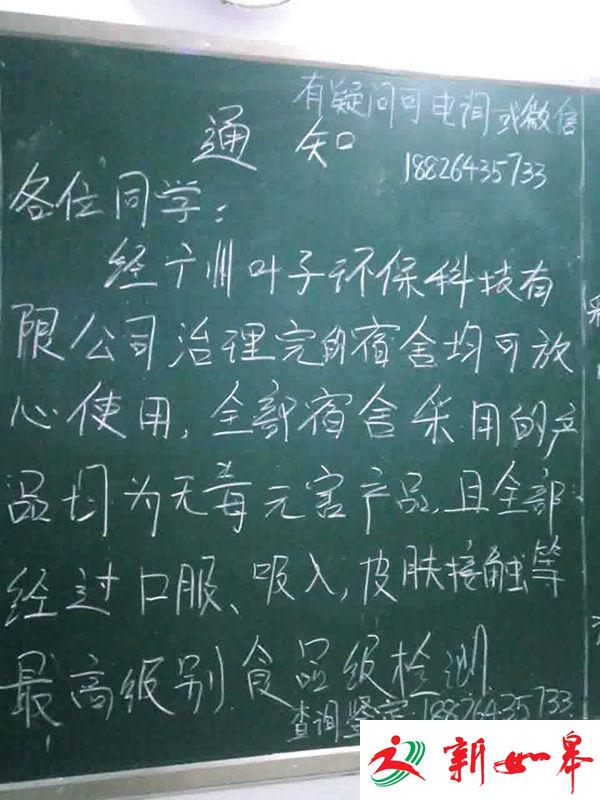 有疑问可电询或微信
通 知
18826435733
各位同学:
经广州叶子环保科技有
限公司治理完的宿舍均可放
心使用,全部宿舍采用的产
品均为无毒无害产品,且全部
经过口服、吸入,皮肤接触等
最高级别食品级检测
查询鉴定:18826435733
新如皋